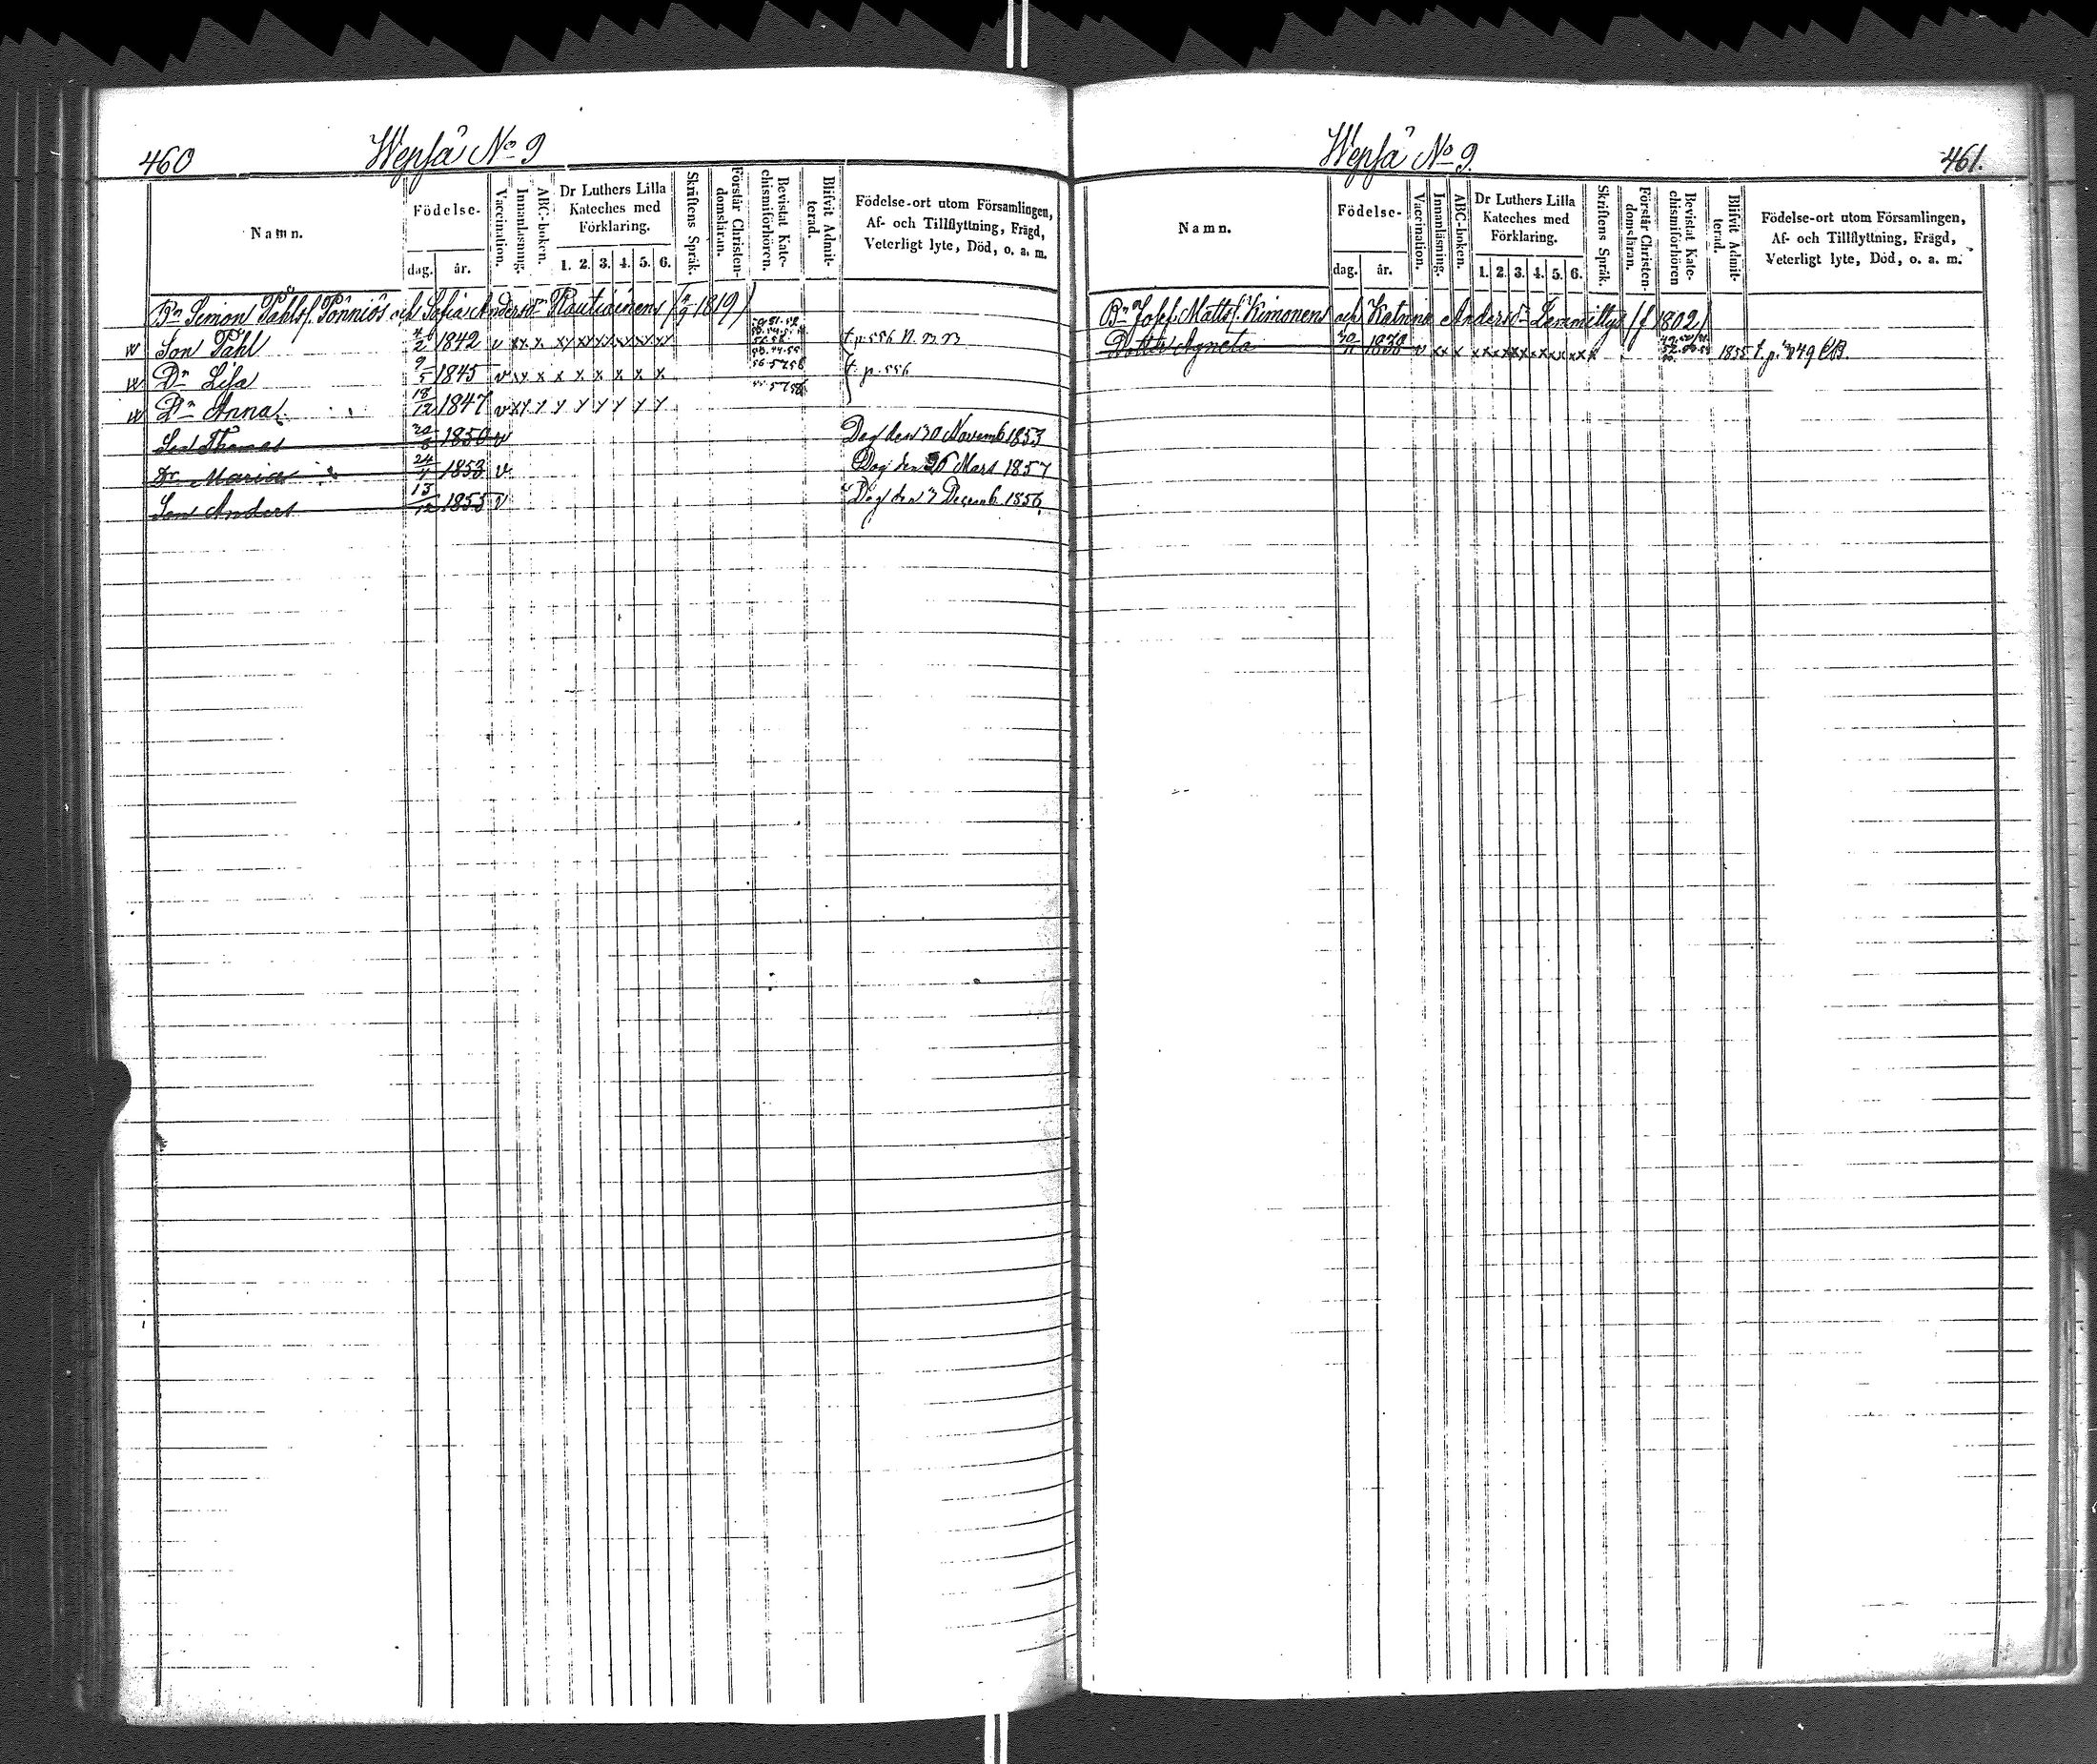 460 Wepsä No 9
Namn.
Födelse-
dag. år.
Vaccination.
Innanläsning.
ABC-boken.
Dr Luthers Lilla
Kateches med
Förklaring.
1. 2. 3. 4. 5. 6.
Skriftens Språk.
Förstår Christen-
domsläran.
Bevistat Kate-
chismiförhören.
Blifvit Admit-
terad.
Födelse-ort utom Församlingen,
Af- och Tillflyttning, Frägd,
Veterligt lyte, Död, o. a. m.
Bn Simon Påhlss. Pönniös och Sofia Andersdr Rautiainens 1819
w Son Påhl 1842 v x x x t. p. 556
w Dr Lisa 9/5 1845 v x x x x x x x x 56 57 58 t. p. 556
w Dr Anna 18/12 1847 v x y y y y y y y y 57 58
Son Thomas 1850 v Dog den 30 Novemb 1853
Dr Maria 24/4 1853 v Dog den 26 Mars 1857
Son Anders 1855 v Dog den 3 Decemb. 1856.
Wepsä No 9. 461.
Namn.
Födelse-
dag. år.
Vaccination.
Innanläsning.
ABC-boken.
Dr Luthers Lilla
Kateches med
Förklaring.
1. 2. 3. 4. 5. 6.
Skriftens Språk.
Förstår Christen-
domsläran.
Bevistat Kate-
chismiförhören
Blifvit Admit-
terad.
Födelse-ort utom Församlingen,
Af- och Tillflyttning, Frägd,
Veterligt lyte, Död, o. a. m.
Bn Josef Mattss. Kimonens och Katrina Andersdr Lemmittys (f 1802)
Dotter Agneta 30/11 1838 v x x x x x x x x x x x 1855 t. p.